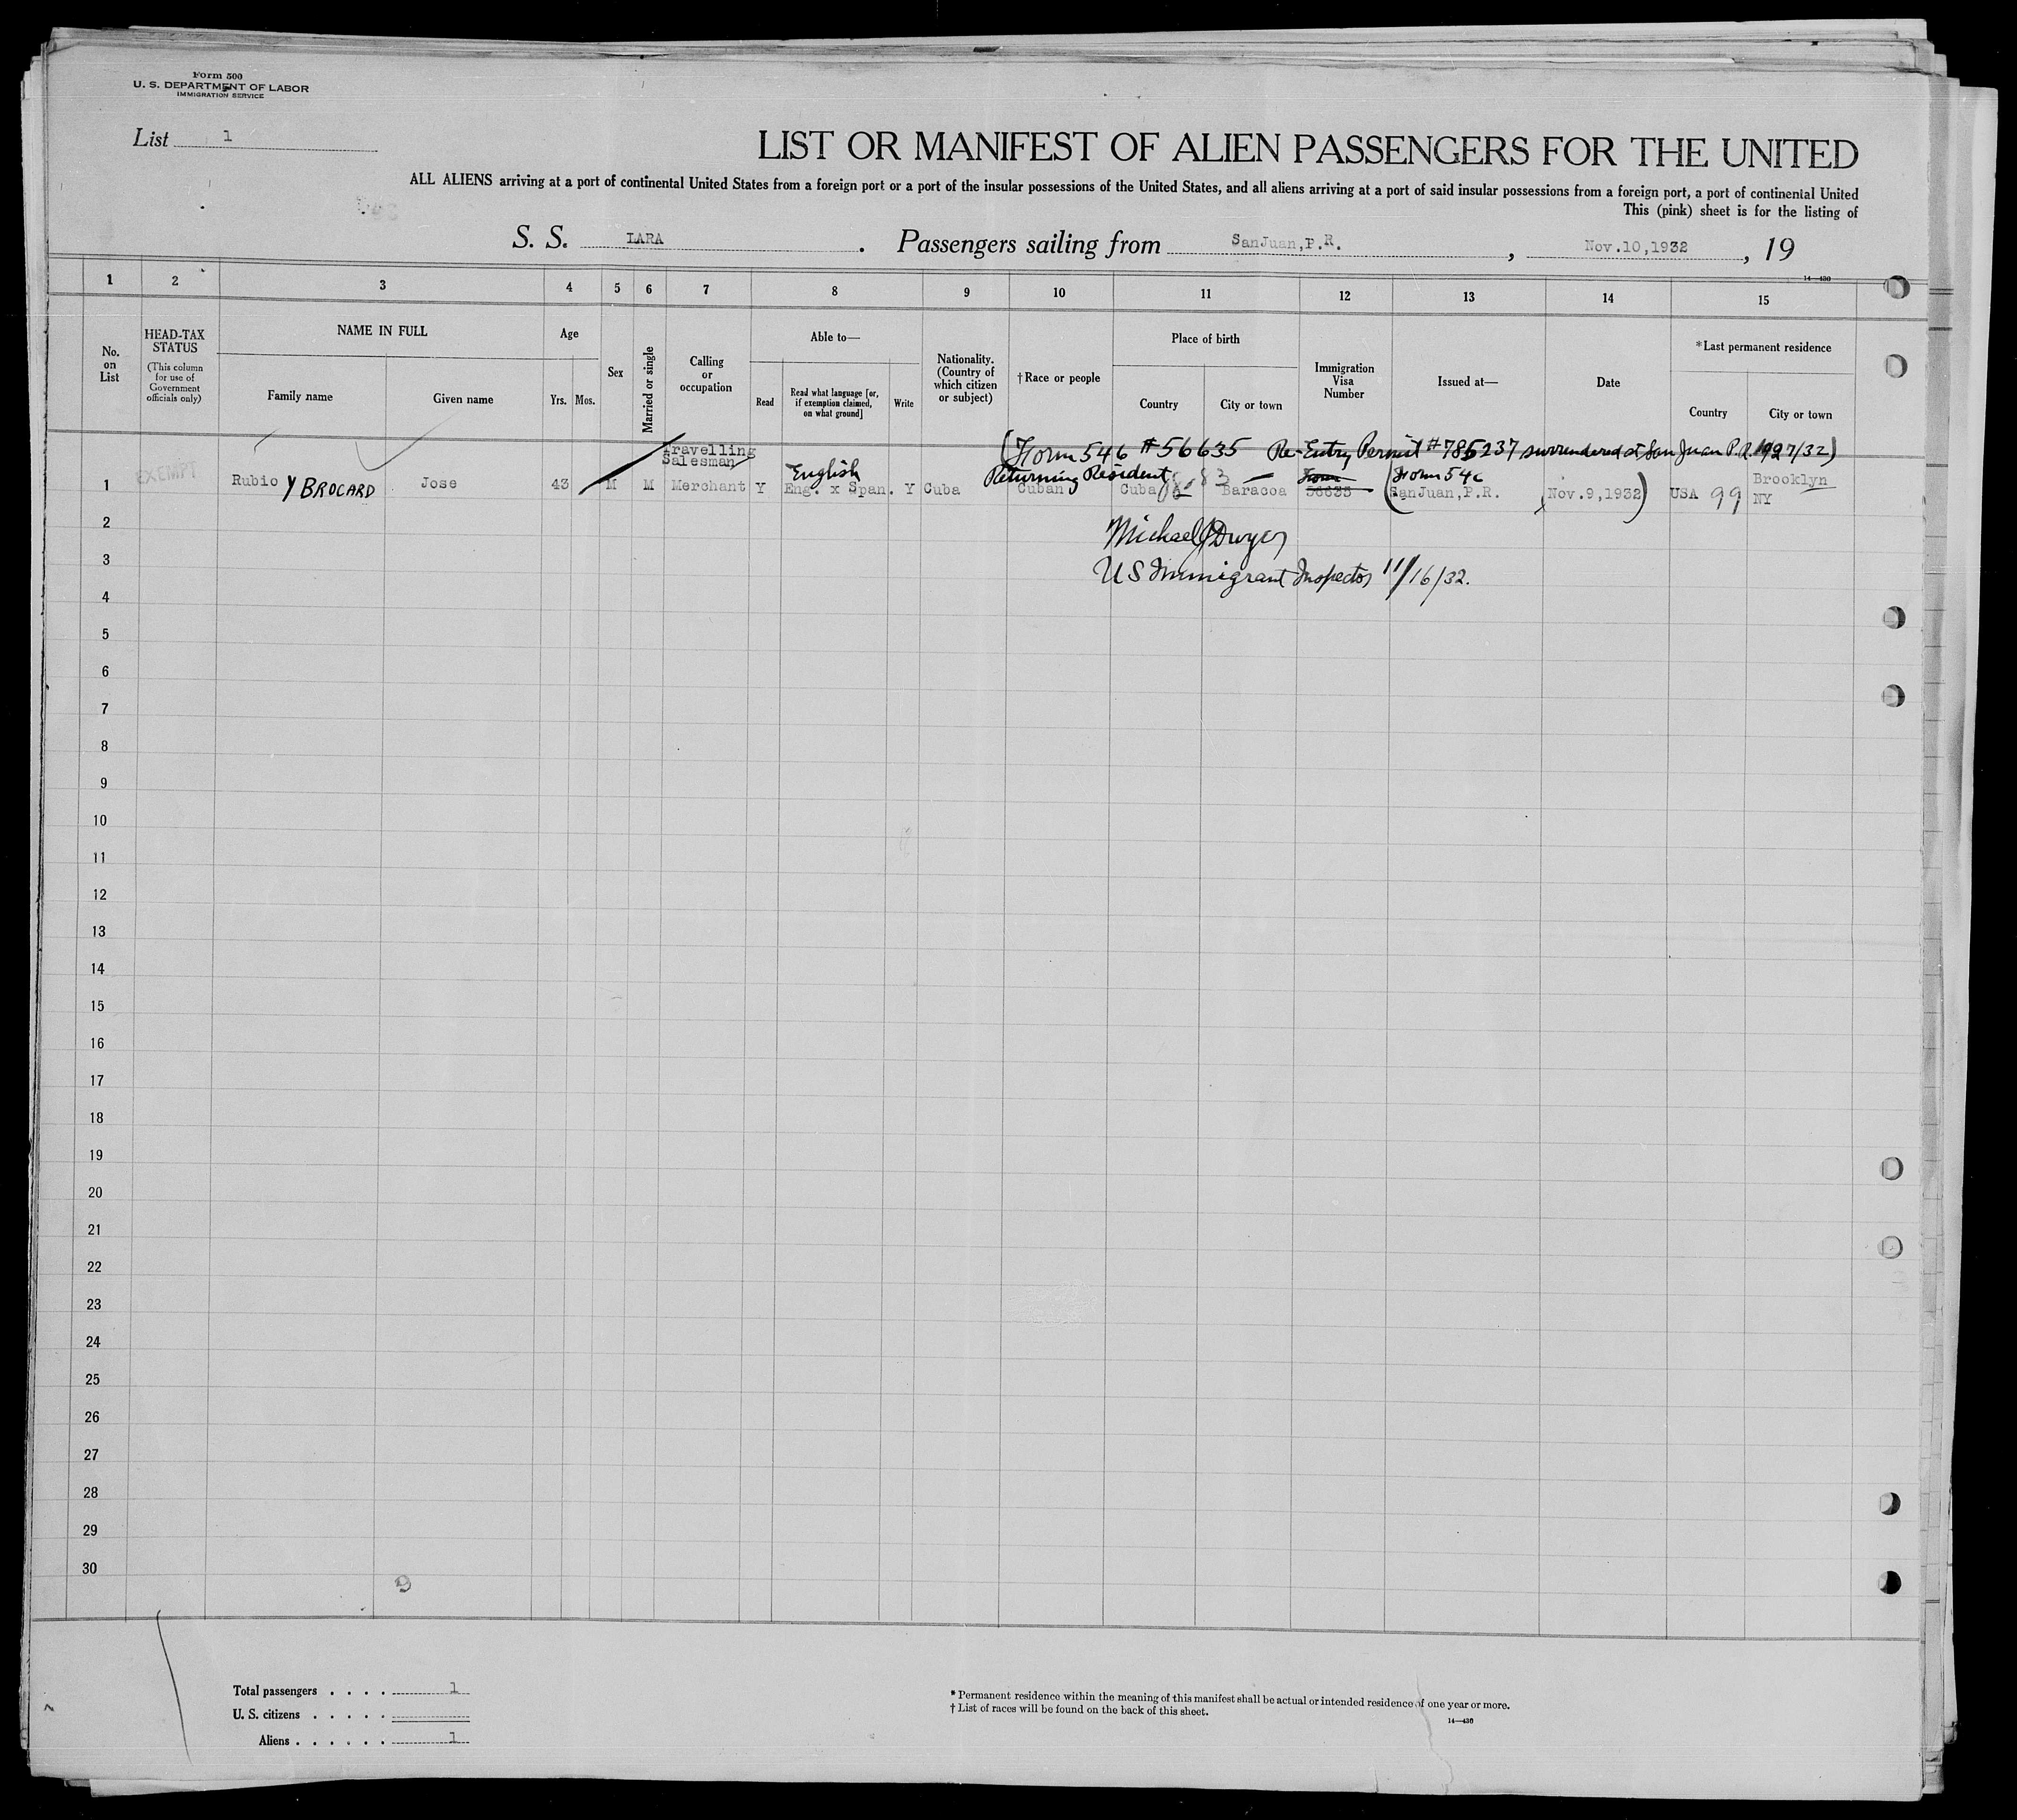 Form 500
U. S. DEPARTMENT OF LABOR
IMMIGRATION SERVICE
List 1
LIST OR MANIFEST OF ALIEN PASSENGERS FOR THE UNITED
ALL ALIENS arriving at a port of continental United States from a foreign port or a port of the insular possessions of the United States, and all aliens arriving at a port of said insular possessions from a foreign port, a port of continental United
This (pink) sheet is for the listing of
S. S. LARA . Passengers sailing from SanJuan,P.R. , Nov.10,1932 , 19
14—430
1 2 3 4 5 6 7 8 9 10 11 12 13 14 15
No. on List
HEAD-TAX STATUS
(This column for use of Government officials only)
NAME IN FULL
Family name
Given name
Age
Yrs. Mos.
Sex
Married or single
Calling or occupation
Able to—
Read
Read what language [or, if exemption claimed, on what ground]
Write
Nationality. (Country of which citizen or subject)
†Race or people
Place of birth
Country
City or town
Immigration Visa Number
Issued at—
Date
*Last permanent residence
Country
City or town
(Form 546 #56635 Re-Entry Permit #785237 surrendered at San Juan P.R.
Travelling
Salesman
English
Returning Resident
Form
(Form 546
Brooklyn
1 EXEMPT Rubio Y BROCARD Jose 43 M M Merchant Y Eng. x Span. Y Cuba Cuban Cuba Baracoa 56635 SanJuan,P.R. (Nov.9,1932) USA 99 NY
2
Michael J Dwyer
3
US Immigrant Inspector 11/16/32.
4
5
6
7
8
9
10
11
12
13
14
15
16
17
18
19
20
21
22
23
24
25
26
27
28
29
30
9
Total passengers . . . . 1
U. S. citizens . . . . .
Aliens . . . . . . 1
* Permanent residence within the meaning of this manifest shall be actual or intended residence of one year or more.
† List of races will be found on the back of this sheet.
14—430